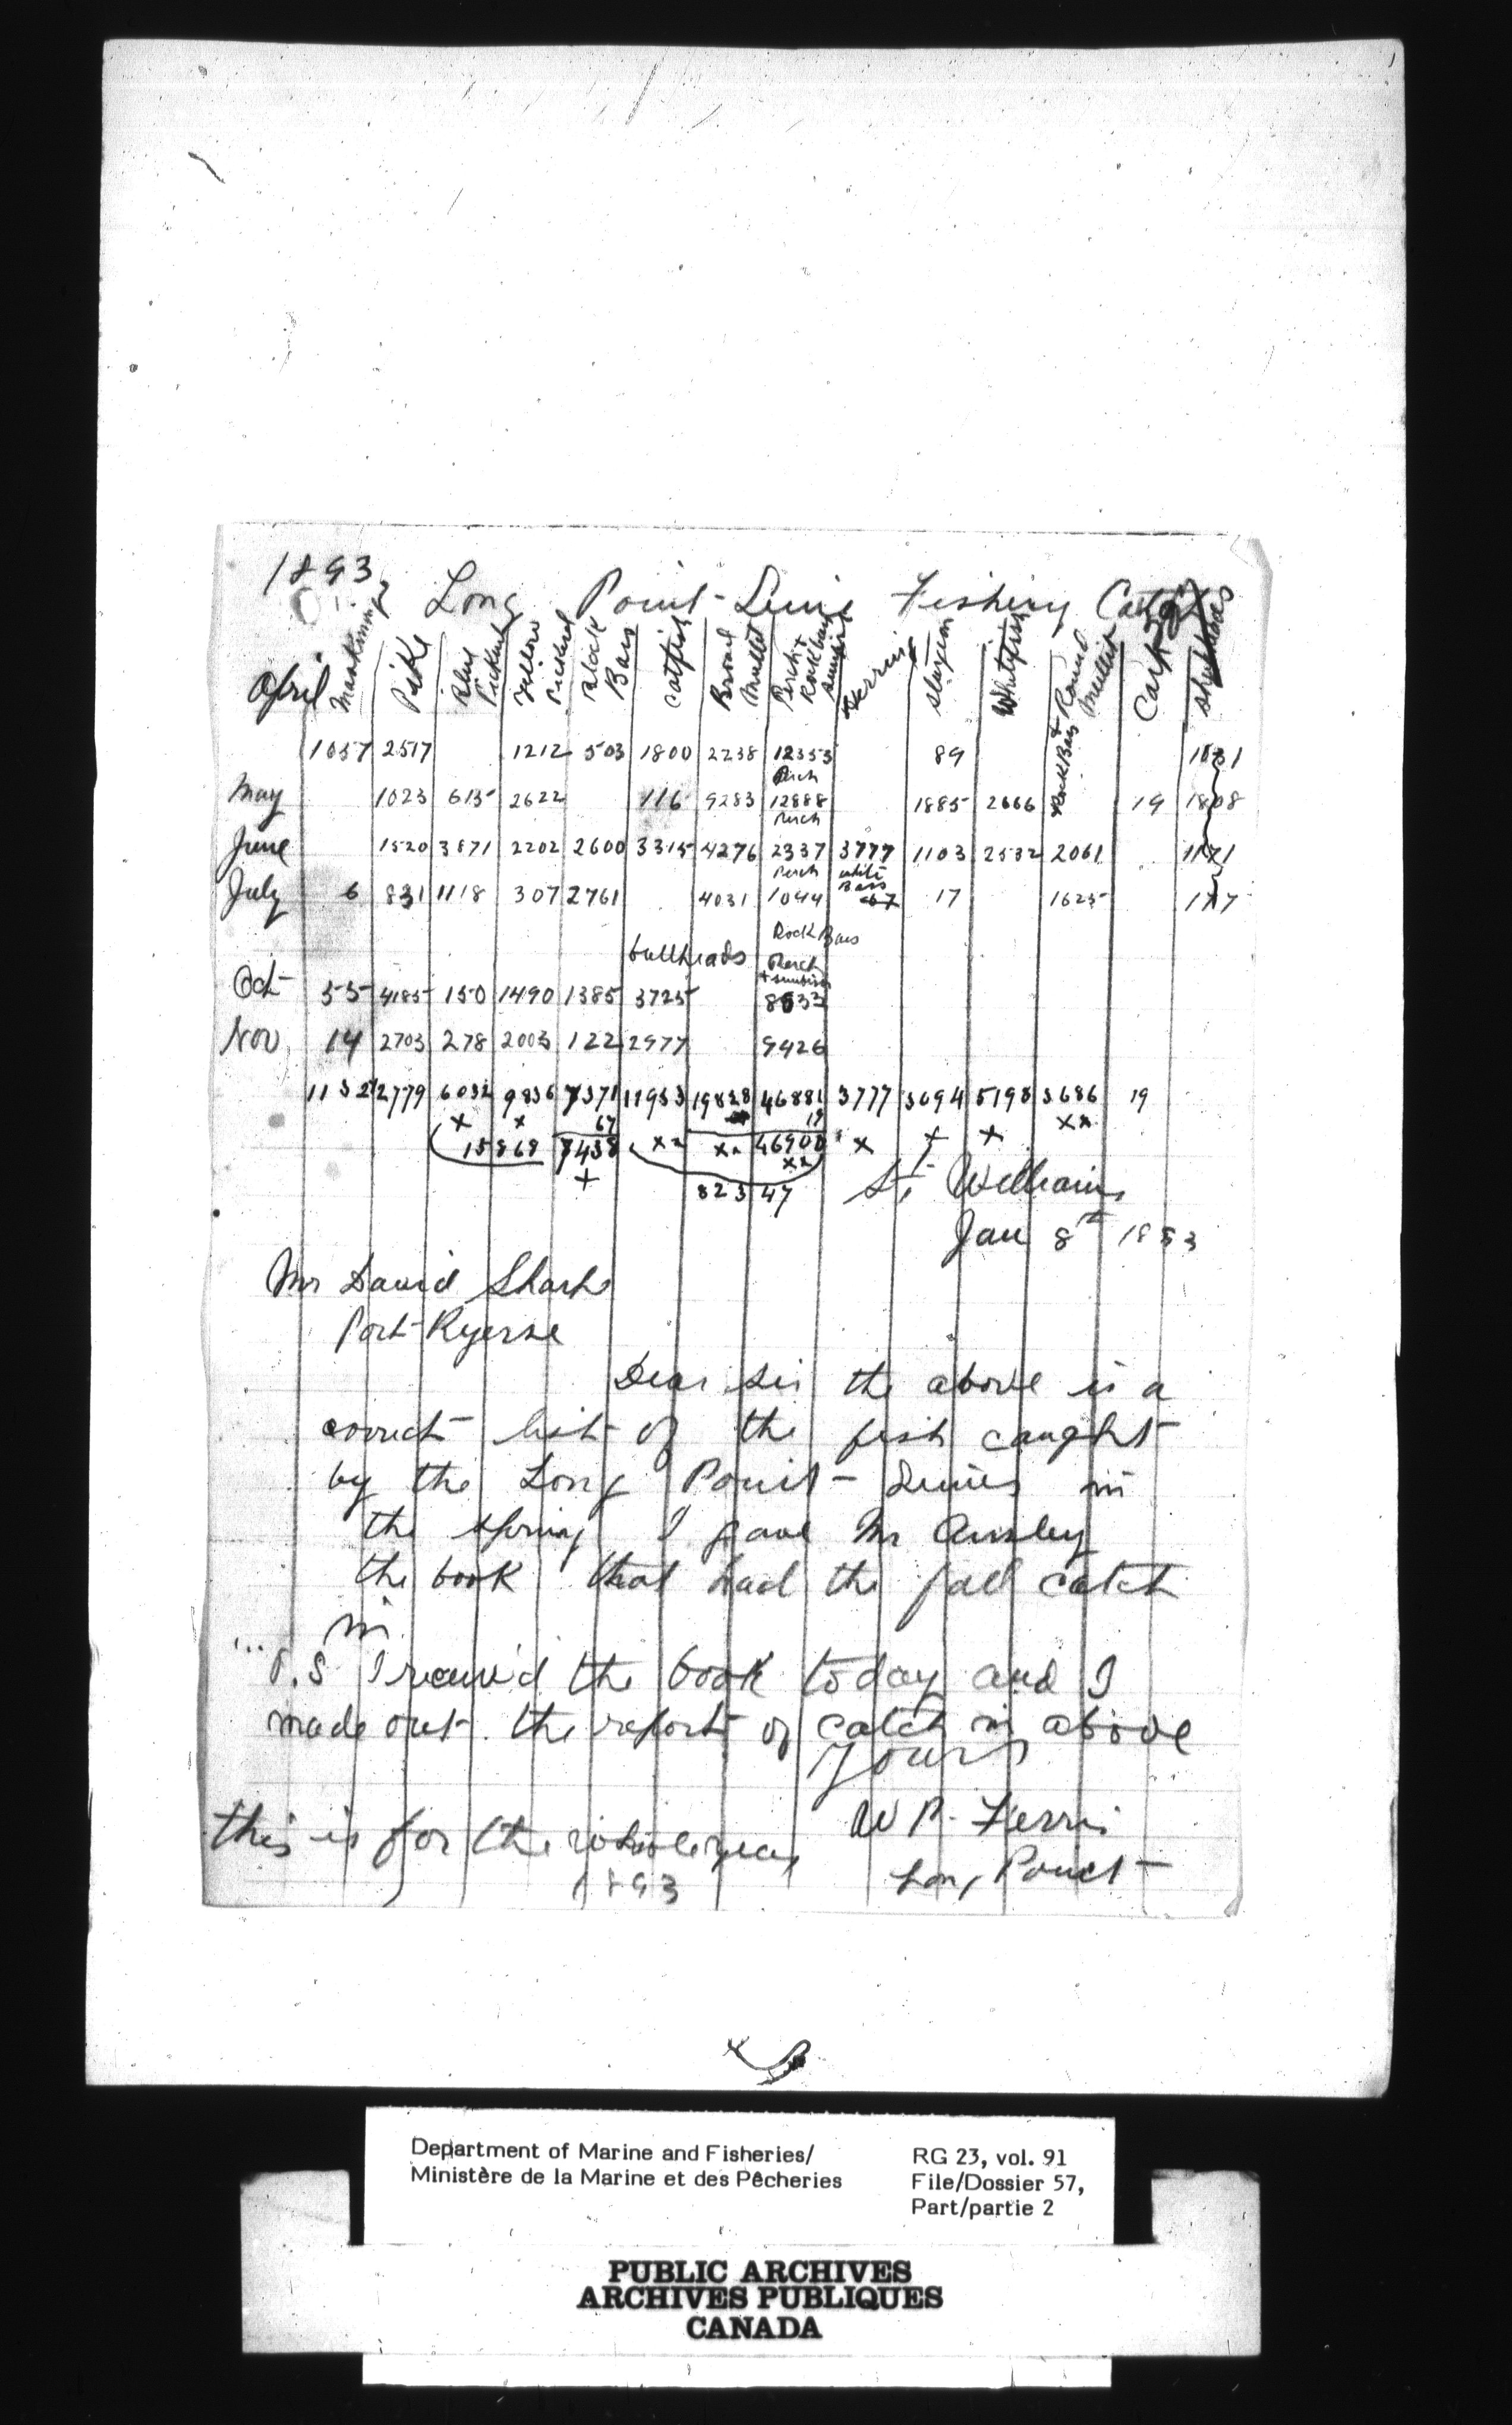 1893
Long Point Seine Fishing Catch
April Maskinonge Pike Blue Pickerel Yellow Pickerel Black Bass Catfish Broad Mullet Perch + Rock bass Sunfish Herring Sturgeon Whitefish Round Mullet + Rock Bass Carp
1057 2517 1212 503 1800 2238 12353 89 1831
Perch
May 1023 615 2622 116 9283 12888 1885 2666 19 1808
Perch
June 1520 3871 2202 2600 3315 4276 2337 3777 1103 2532 2061 1171
Perch white Bass
July 6 831 1118 307 2761 4031 1044 67 17 1625 117
Rock Bass
bullheads Perch
+ sunfish
Oct 55 4185 150 1490 1385 3725 8633
Nov 14 2703 278 2003 122 2977 9426
1132 12779 6032 9836 7371 11953 19828 46881 3777 3094 5198 3686 19
x x 67 19 xx
15868 7438 xx xx 46900 x x x
+ xx
82347
St Williams
Jan 8th 1893
Mr David Sharp
Port Ryerse
Dear Sir the above is a
correct list of the fish caught
by the Long Point Seines in
the spring I gave Mr Ansley
the book that had the fall catch
in.
P.S I receiv'd the book today and I
made out the report of catch in above
Yours
W P. Ferris
Long Point
this is for the whole year
1893
Department of Marine and Fisheries/
Ministère de la Marine et des Pêcheries
RG 23, vol. 91
File/Dossier 57,
Part/partie 2
PUBLIC ARCHIVES
ARCHIVES PUBLIQUES
CANADA